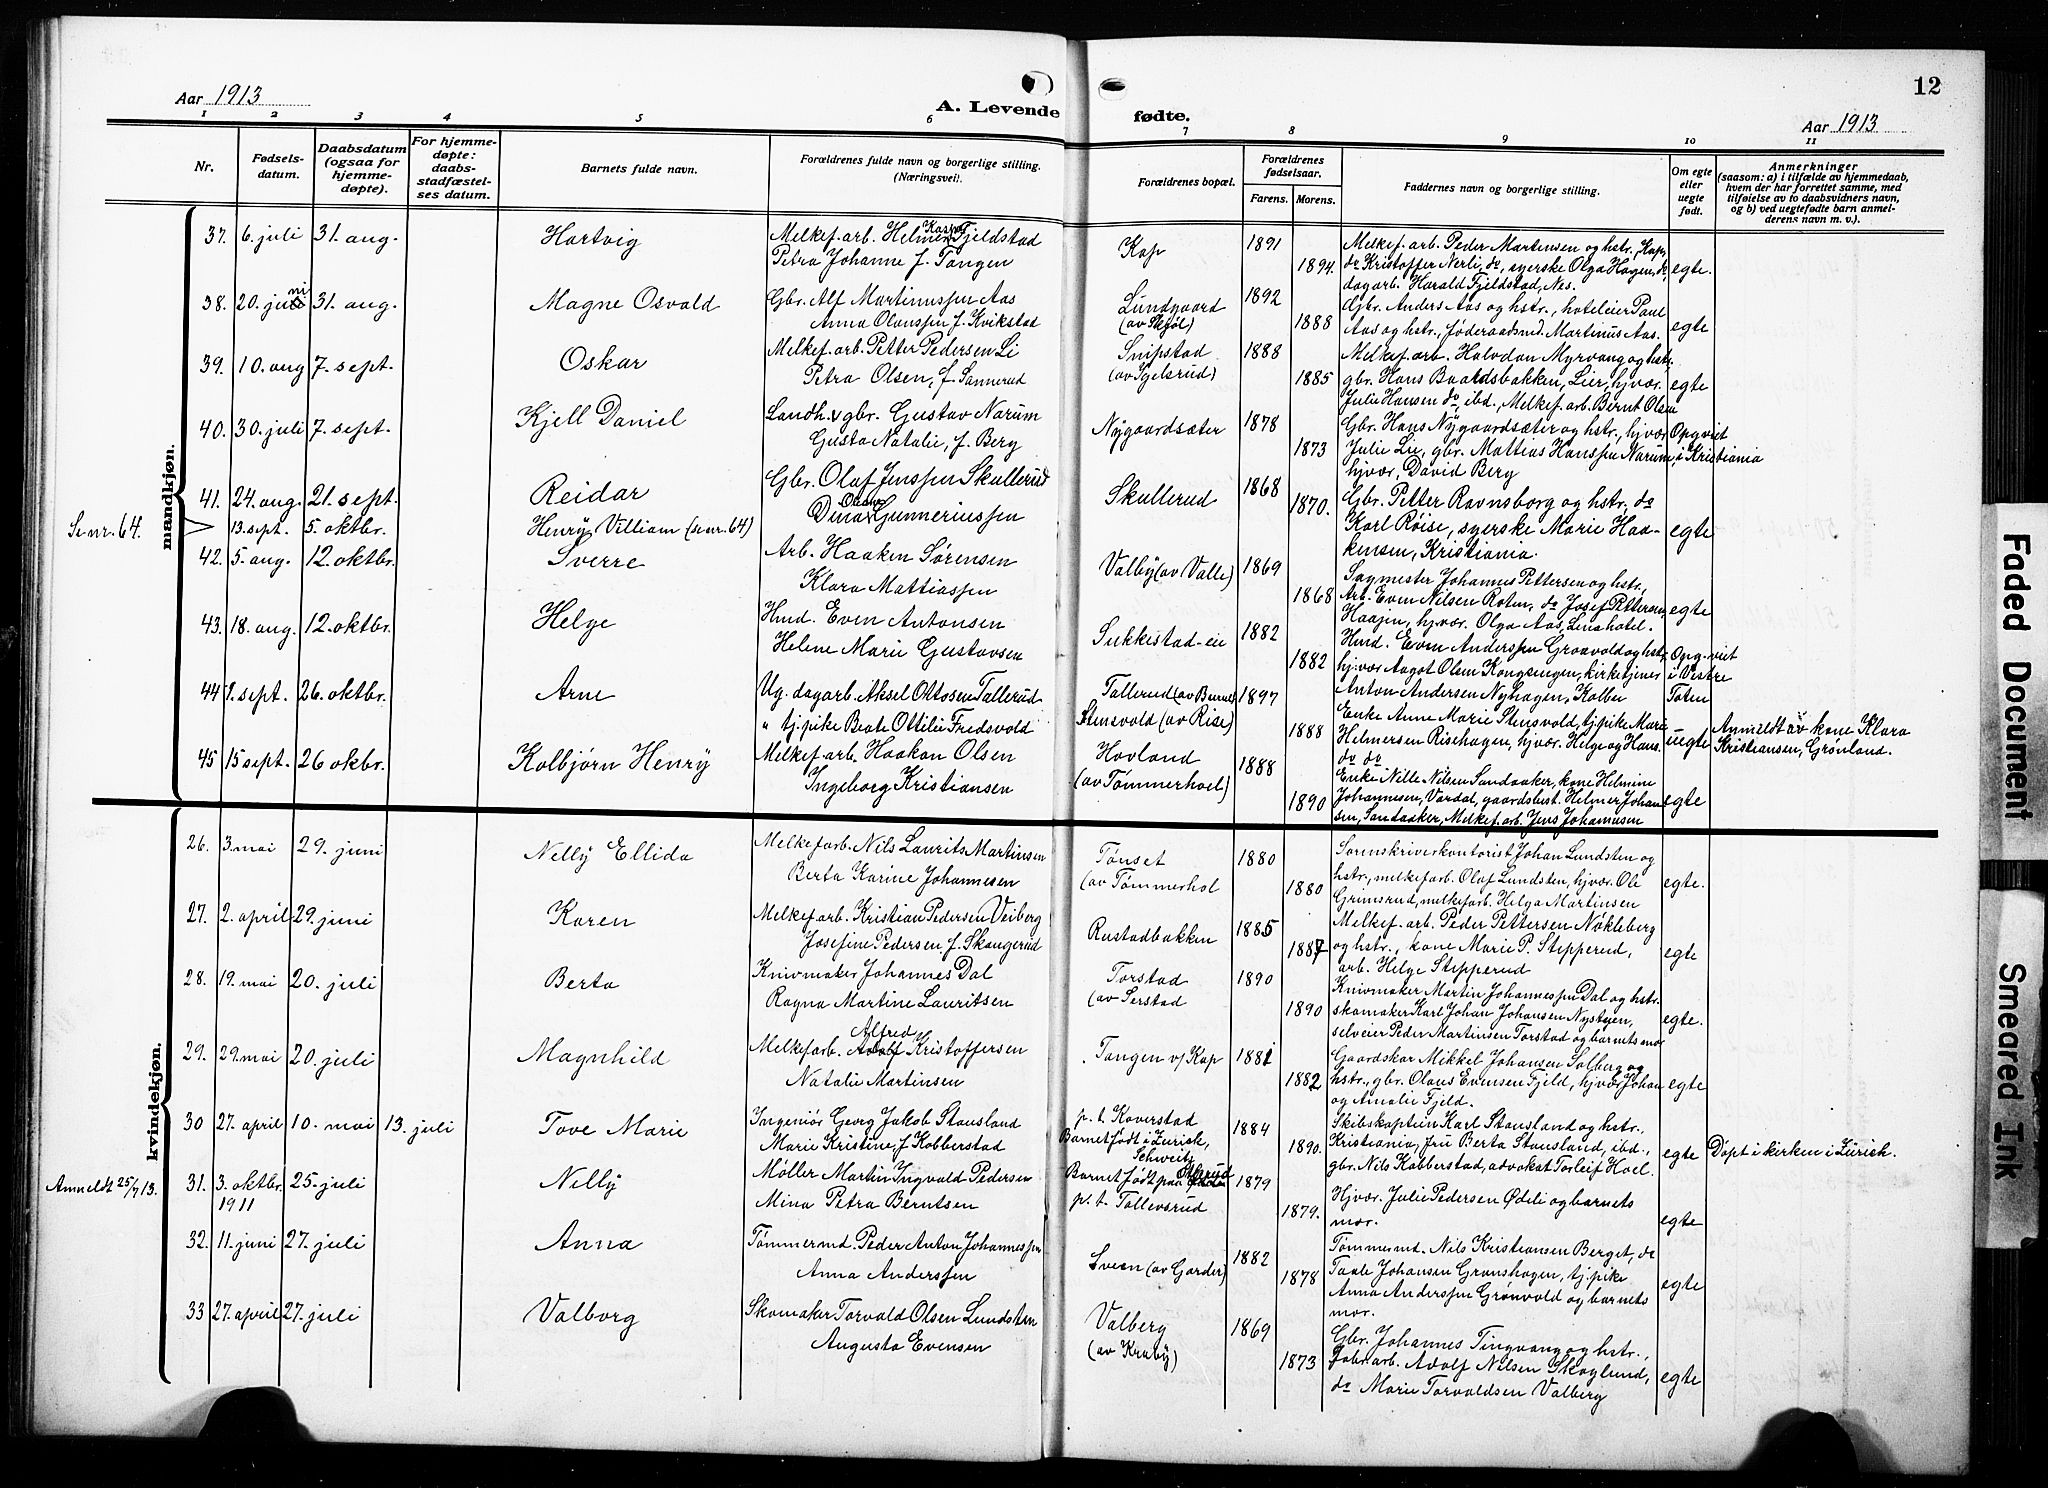 Aar 1913
A. Levende
fødte.
Aar 1913
12
1 2 3 4 5 6 7 8 9 10 11
Nr.
Fødsels-
datum.
Daabsdatum
(ogsaa for
hjemme-
døpte).
For hjemme-
døpte:
daabs-
stadfæstel-
ses datum.
Barnets fulde navn.
Forældrenes fulde navn og borgerlige stilling.
(Næringsvei).
Forældrenes bopæl.
Forældrenes
fødselsaar.
Farens. Morens.
Faddernes navn og borgerlige stilling.
Om egte
eller
uegte
født.
Anmerkninger
(saasom: a) i tilfælde av hjemmedaab,
hvem der har forrettet samme, med
tilføielse av to daabsvidners navn,
og b) ved uegtefødte barn anmel-
derens navn m. v.).
mandkjøn.
37. 6. juli 31. aug. Hartvig
Melkef. arb. Helmer Kasp. Fjeldstad
Petra Johanne f. Tangen
Kap
1891
1894.
Melkef. arb. Peder Martensen og hstr., Kap,
do Kristoffer Nerli, do, syerske Olga Hagen, do,
dagarb. Harald Fjeldstad, Nes.
egte.
38. 20. juni 31. aug. Magne Osvald
Gbr. Alf Martinussen Aas
Anna Olaussen f. Kvikstad
Lundgaard
(av Skjøl)
1892
1888
Gbr. Anders Aas og hstr., hoteleier Paul
Aas og hstr., føderaadsmd. Martinus Aas.
egte
39. 10. aug 7. sept. Oskar
Melkef. arb. Petter Pedersen Li
Petra Olsen, f. Sannerud
Snipstad
(av Igelsrud)
1888
1885
Melkef. arb. Halvdan Myrvang og hstr.
gbr. Hans Baardsbakken, Lier, hjvær.
Julie Hansen do, ibd., Melkef. arb. Bernt Olsen
egte
40. 30. juli 7. sept. Kjell Daniel
Landh. & gbr. Gustav Narum
Gusta Natalie, f. Berg
Nygaardsæter
1878
1873
Gbr. Hans Nygaardsæter og hstr., hjvær
Julie Lie, gbr. Mattias Hanssen Narum,
hjvær. David Berg
Opg. viet
i Kristiania
41. 24. aug. 21. sept. Reidar
Gbr. Olaf Jenssen Skullerud
Dina Olava Gunneriussen
Skullerud
1868
1870.
Gbr. Petter Ravnsborg og hstr., do
Karl Røise, syerske Marie Haa-
kensen, Kristiania.
egte
Se nr. 64.
13. sept. 5. oktbr. Henry Villiam (se nr. 64)
42. 5. aug. 12. oktbr. Sverre
Arb. Haaken Sørensen
Klara Mattiassen
Valby (av Valle)
1869
1868
Sagmester Johannes Pettersen og hstr.,
Arb. Even Nilsen Roten, do Josef Pettersen,
Haajen, hjvær. Olga Aas, Lena hotel.
egte
43. 18. aug. 12. oktbr. Helge
Hmd. Even Antonsen
Helene Marie Gustavsen
Sukkestad-eie
1882
1882
Hmd. Even Anderssen Graavold og hstr,
hjvær Aagot Olsen Kongsengen, kirketjener
Anton Andersen Nyhagen, Kolbu
Opg. viet
i Vestre
Toten
44 1. sept. 26. oktbr. Arne
Ug. dagarb. Aksel Ottosen Tallerud
" tj.pike Beate Ottilie Fredsvold
Tallerud (av Burud)
Stensvold (av Rise)
1897
1888
Enke Anne Marie Stensvold, tj.pike Marie
Helmersen Risehagen, hjvær. Helge og Hans
do do
uegte
Anmeldt av kone Klara
Kristiansen, Grønland.
45 15 sept. 26 okbr. Kolbjørn Henry
Melkef. arb. Haakon Olsen
Ingeborg Kristiansen
Hovland
(av Tømmerhoel)
1888
1890
Enke Nille Nilsen Sandaaker, kone Helmine
Johannesen, Vardal, gaardsbest. Helmer Johan-
sen, Sandaaker, Melkef. arb. Jens Johannesen
egte
kvindekjøn.
26. 3. mai 29. juni Nelly Ellida
Melkefarb. Nils Laurits Martinsen
Berta Karine Johannesen
Tønset
(av Tømmerhol
1880
1880
Sorenskriverkontorist Johan Lundsten og
hstr., melkefarb. Olaf Lundsten, hjvær. Ole
Grimsrud, melkefarb. Helga Martinsen
egte.
27. 2. april 29. juni Karen
Melkef arb. Kristian Pedersen Veiberg
Josefine Pedersen f. Skaugerud
Rustadbakken
1885
1887
Melkef. arb. Peder Pettersen Nøkleberg
og hstr., kone Marie P. Stepperud,
arb. Helge Stepperud
egte
28. 19. mai 20. juli Berta
Knivmaker Johannes Dal
Ragna Martine Lauritsen
Torstad
(av Serstad
1890
1890
Knivmaker Martin Johannessen Dal og hstr.
skomaker Karl Johan Johansen Nystuen,
selveier Peder Martinsen Torstad og barnets mor
egte.
29. 29. mai 20. juli Magnhild
Melkefarb. Alfred Kristoffersen
Natalie Martinsen
Tangen v/ Kap
1881
1882
Gaardskar Mikkel Johansen Solberg og
hstr., gbr. Olaus Evensen Fjeld, hjvær Johan
og Amalie Fjeld.
egte
30 27. april 10. mai 13. juli Tove Marie
Ingeniør Georg Jakob Stausland
Marie Kristine f. Kobberstad
p. t. Kaverstad
Barnet født i Zurich,
Schweitz
1884
1890.
Skibskaptein Karl Stausland og hstr.,
Kristiania, fru Berta Stausland, ibd.,
gbr. Nils Kobberstad, advokat Torleif Hoel.
egte
Døpt i kirken i Zürich.
Anmeldt 25/7 13.
31. 3. oktbr. 25. juli Nelly
1911
Møller Martin Ingvald Pedersen
Mina Petra Berntsen
Barnet født paa
p. t. Tollevsrud
1879
1879.
Hjvær. Julie Pedersen Ødeli og barnets
mor.
egte
32. 11. juni 27. juli Anna
Tømmermd. Peder Anton Johannessen
Anna Anderssen
Sveen (av Garder)
1882
1878
Tømmermd. Nils Kristiansen Berget, do
Taale Johansen Granshagen, tj.pike
Anna Anderssen Grønvold og barnets
mor.
egte
33 27. april 27. juli Valborg
Skomaker Torvald Olsen Lundsten
Augusta Evensen
Valberg
(av Kraby)
1869
1873
Gbr. Johannes Tingvang og hstr.,
Fabr. arb. Adolf Nilsen Skoglund,
do Marie Torvaldsen Valberg
egte
Faded Document
Smeared Ink